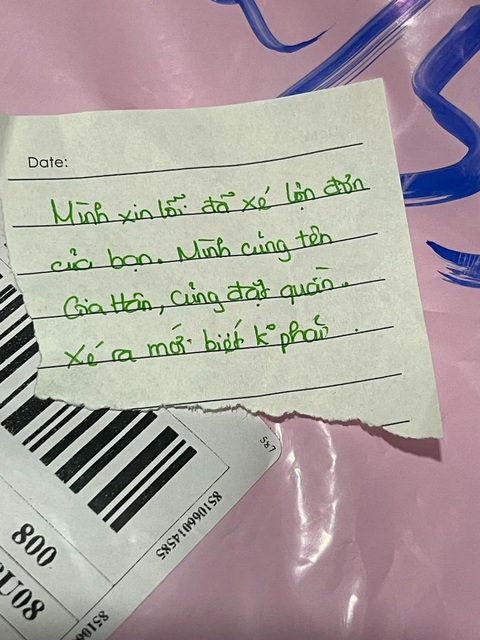 Date:
Mình xin lỗi đã xé lộn đơn
của bạn. Mình cũng tên
Gia Hân, cũng đặt quần.
Xé ra mới biết k phải.
587
851066014585
800
80U
85106